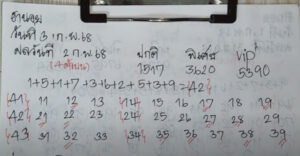 ฮานอย
วันที่ 3 ก.พ.68
ผลวันที่ 2 ก.พ.68 ปกติ พิเศษ vip
1517 3620 5390
1+5+1+7+3+6+2+5+3+9=42
41 11 12 13 14 15 16 17 18 19
42 21 22 23 24 25 26 27 28 29
43 31 32 33 34 35 36 37 38 39